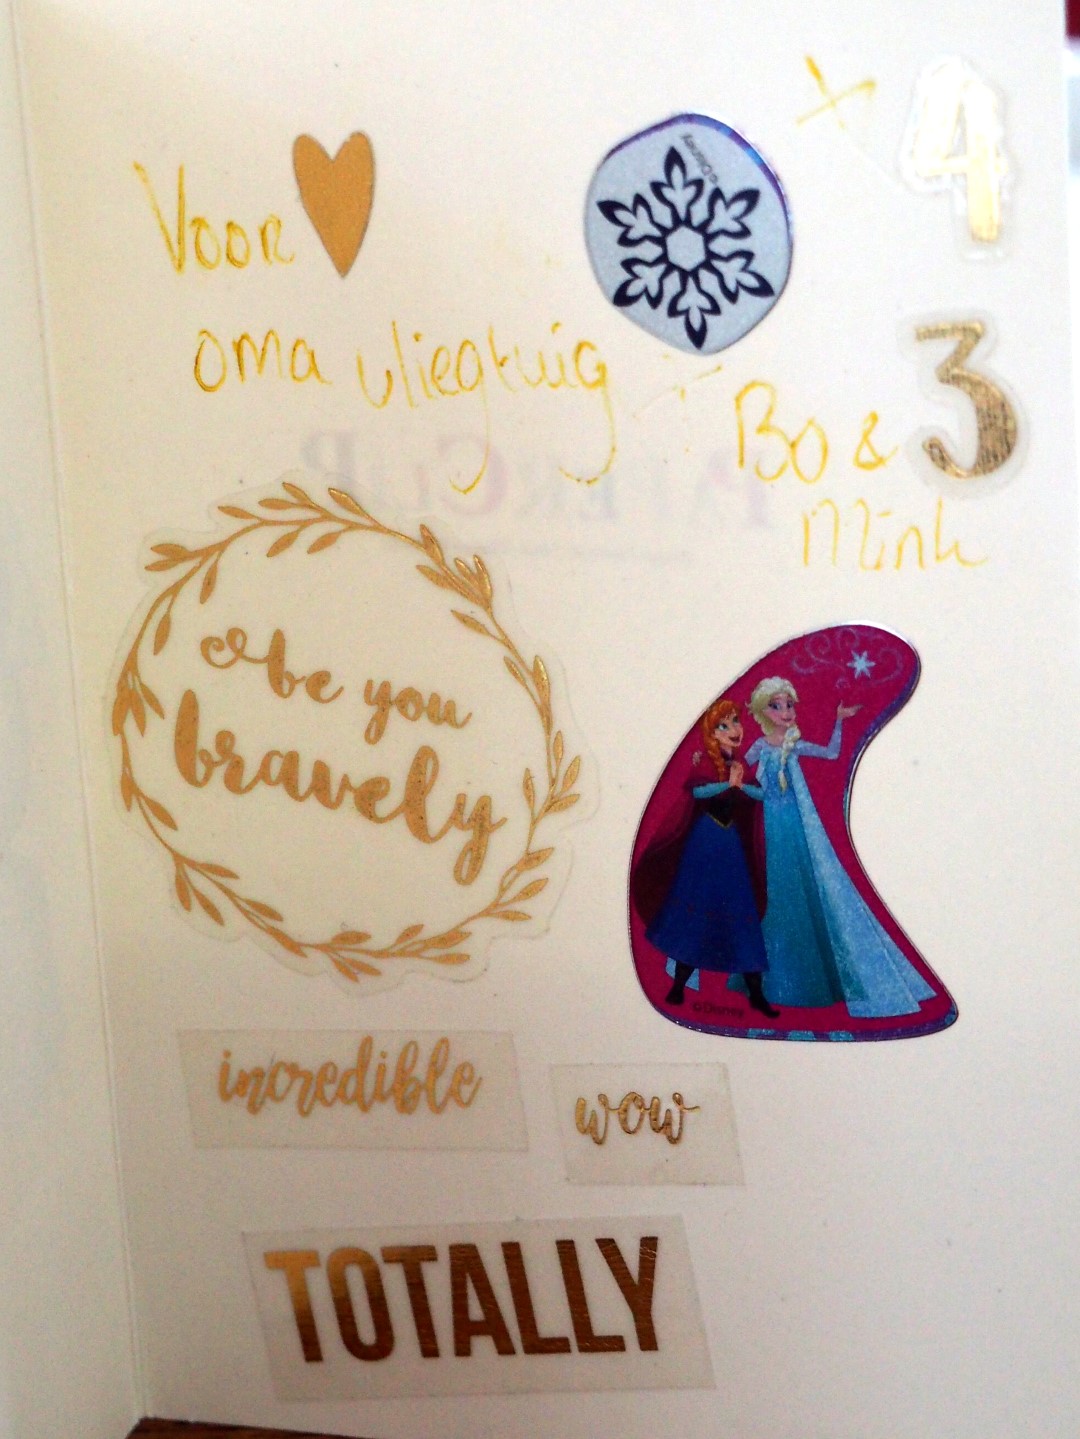 Voor
4
©Disney
oma vliegtuig
3
Bo &
Mink
PAPERCUP
be you
bravely
©Disney
incredible
wow
TOTALLY